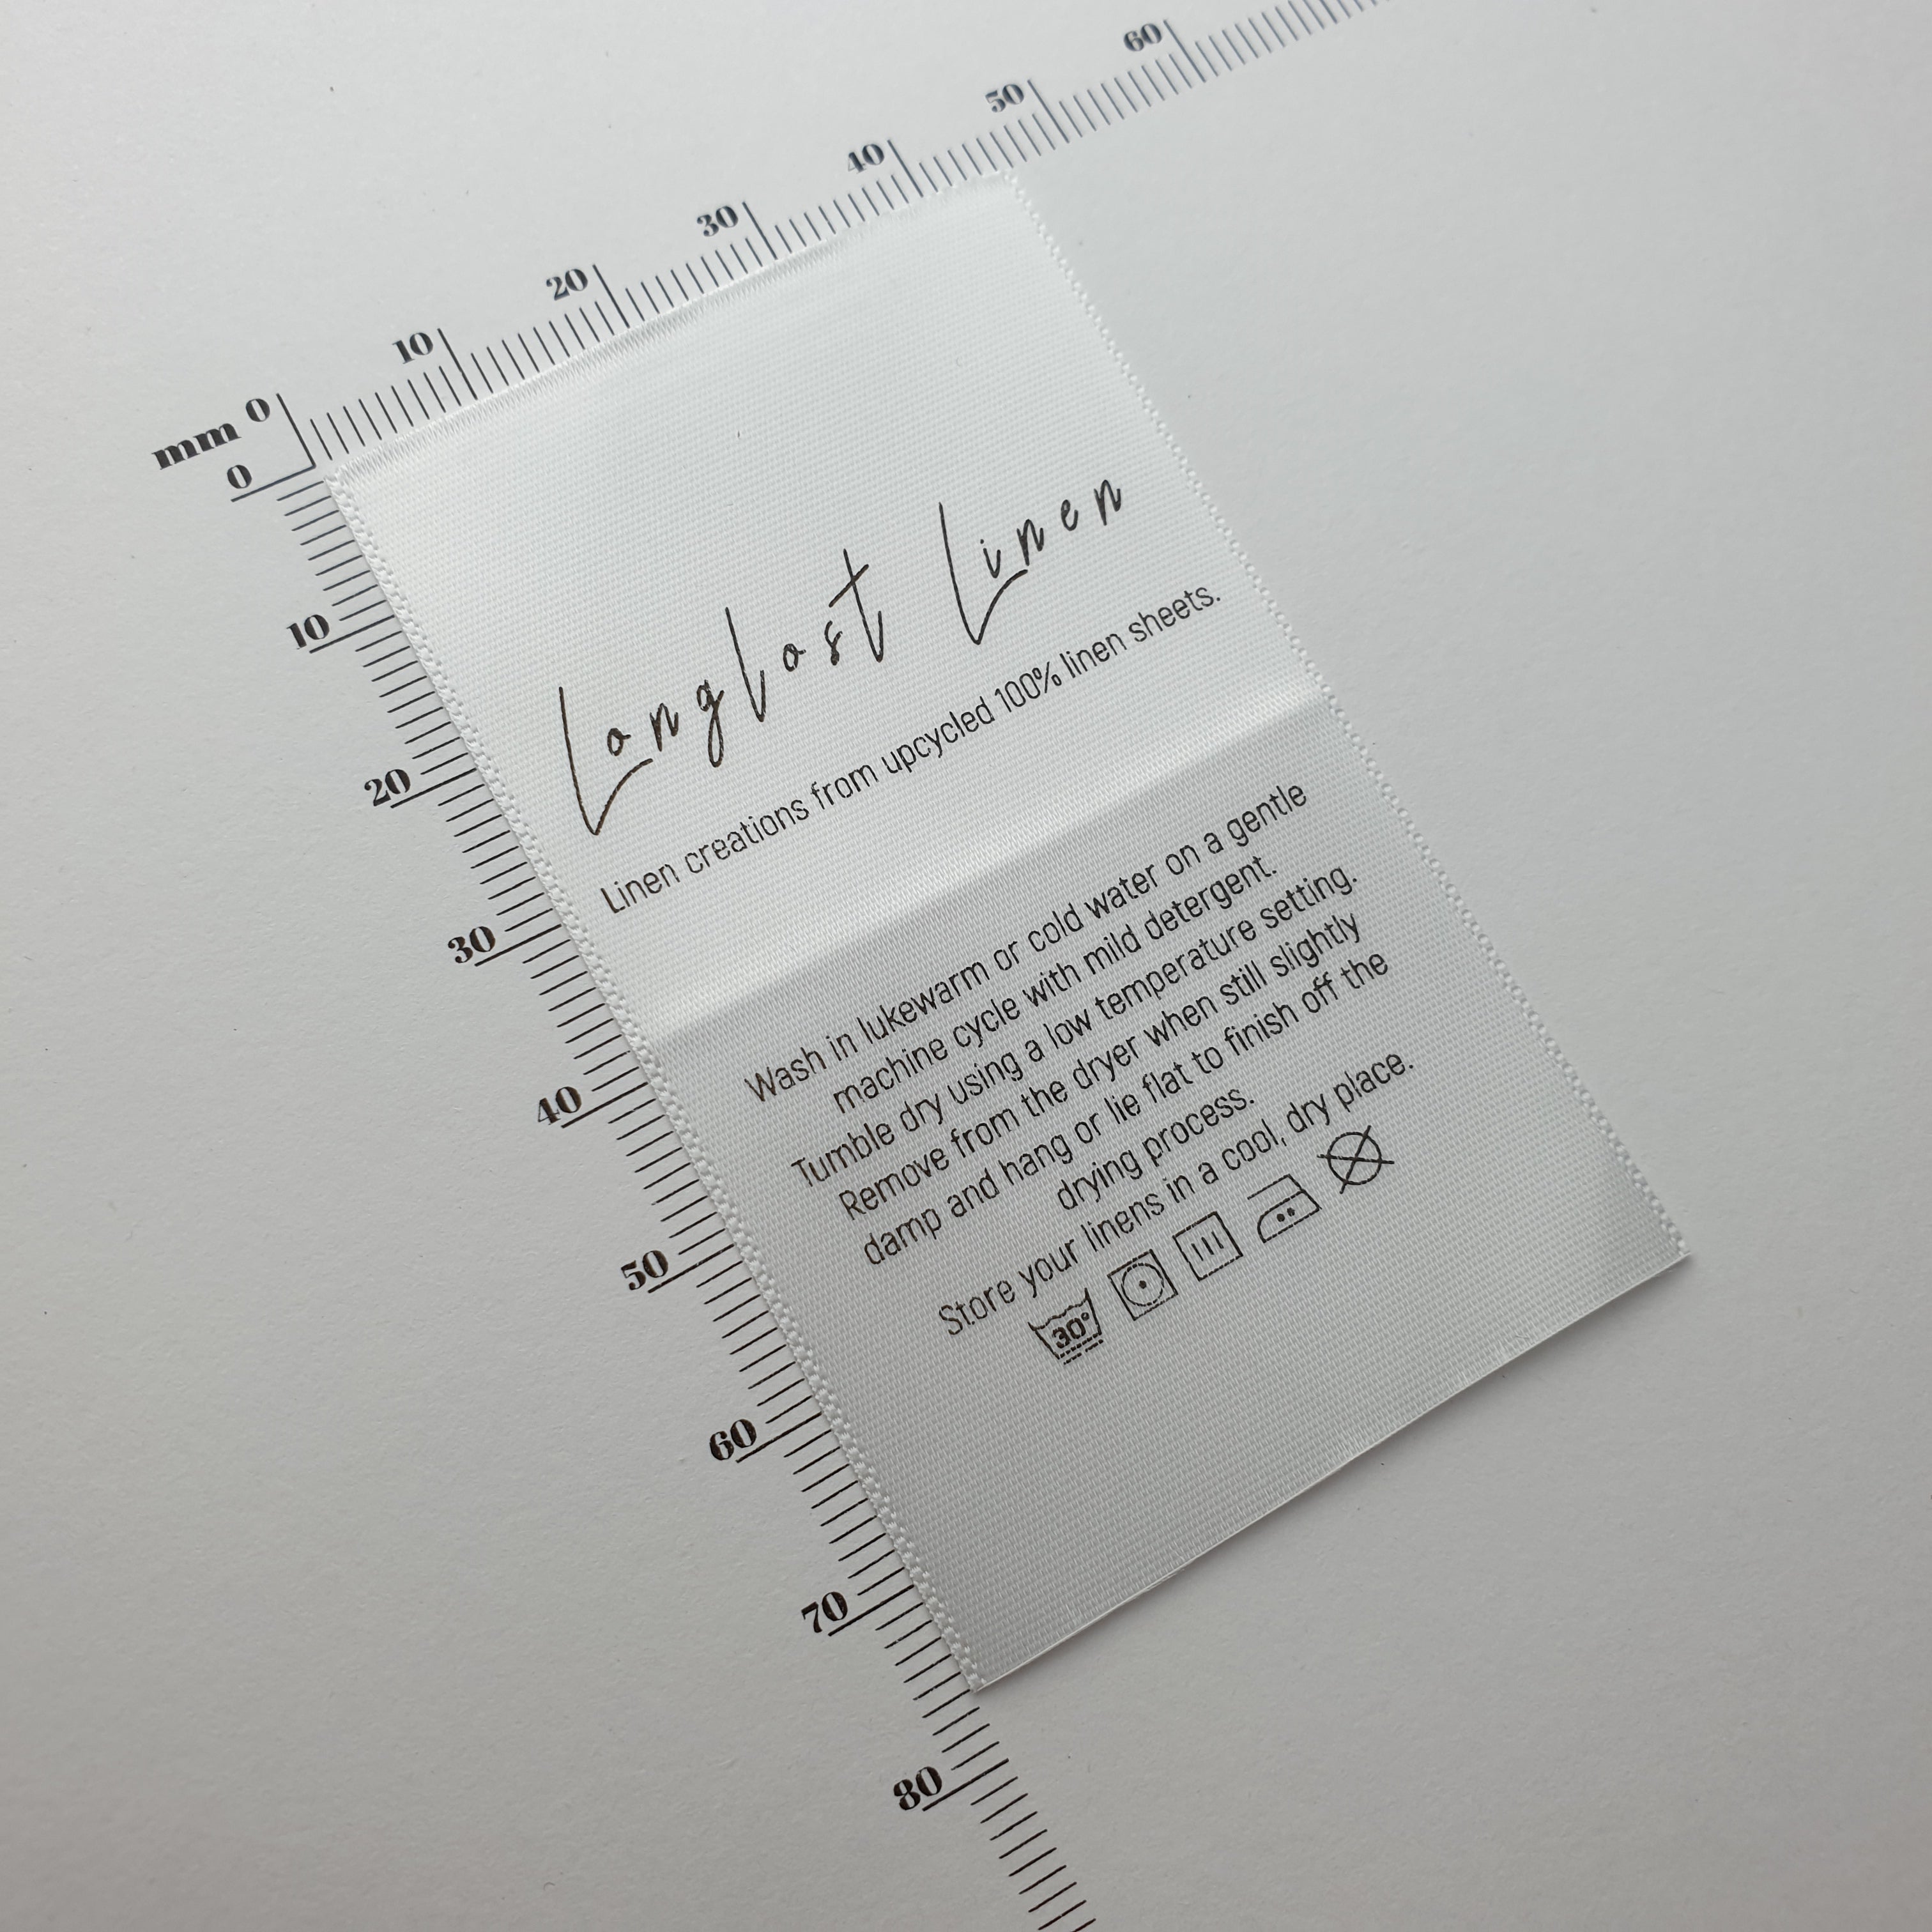 mm 0 10 20 30 40 50 60
0
10
20
30
40
50
60
70
80
Longlost Linen
Linen creations from upcycled 100% linen sheets.
Wash in lukewarm or cold water on a gentle
machine cycle with mild detergent.
Tumble dry using a low temperature setting.
Remove from the dryer when still slightly
damp and hang or lie flat to finish off the
drying process.
Store your linens in a cool, dry place.
30°